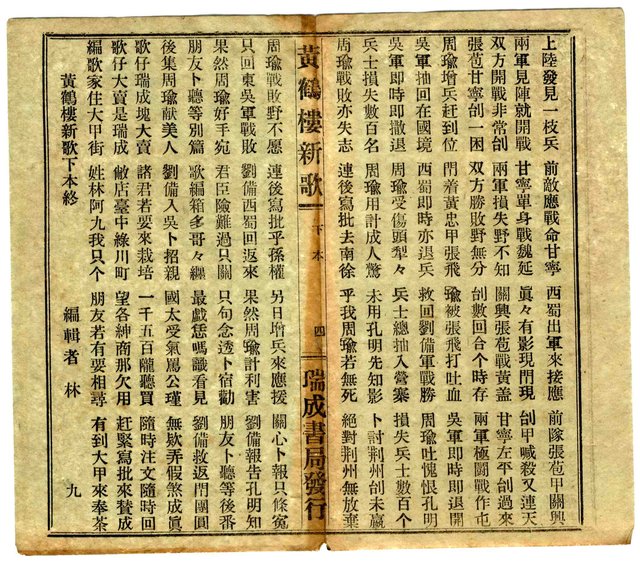 上陸發見一枝兵 前敵應戰命甘寧 西蜀出軍來接應 前隊張苞甲關興
兩軍見陣就開戰 甘寧單身戰魏延 眞々有影現鬥現 刣甲喊殺又連天
双方開戰非常刣 兩軍損失野不知 關興張苞戰黃蓋 甘寧左平刣過來
張苞甘寧刣一困 双方勝敗野無分 刣數回合个時存 兩軍極鬪戰作屯
周瑜增兵赶到位 鬥着黃忠甲張飛 瑜被張飛打吐血 吳軍即時即退開
吳軍抽回在國境 西蜀即時亦退兵 救回劉備軍戰勝 周瑜吐愧恨孔明
吳軍即時即撤退 周瑜受傷頭犁々 兵士總抽入營寨 損失兵士數百个
兵士損失數百名 周瑜用計成人驚 未用孔明先知影 卜討荆州刣未贏
周瑜戰敗亦失志 連後寫批去南徐 乎我周瑜若無死 絕對荆州無放棄
黃鶴樓新歌 下本 四 瑞成書局發行
周瑜戰敗野不愿 連後寫批乎孫權 另日增兵來應援 關心卜報只條寃
只回東吳軍戰敗 劉備西蜀回返來 果然周瑜計利害 劉備報告孔明知
果然周瑜好手宛 君臣險難過只關 只句念透卜宿勸 朋友卜聽等後番
朋友卜聽等別篇 歌編箱多哥々纏 最戲恁嗎識看見 劉備救返鬥團圓
後集周瑜献美人 劉備入吳卜招親 國太受氣罵公瑾 無欵弄假煞成眞
歌仔瑞成塊大賣 諸君若要來栽培 一千五百隴聽買 隨時注文隨時回
歌仔大賣是瑞成 敝店臺中綠川町 望各紳商那欠用 赶緊寫批來賛成
編歌家住大甲街 姓林阿九我只个 朋友若有要相尋 有到大甲來奉茶
黃鶴樓新歌下本終 編輯者 林 九